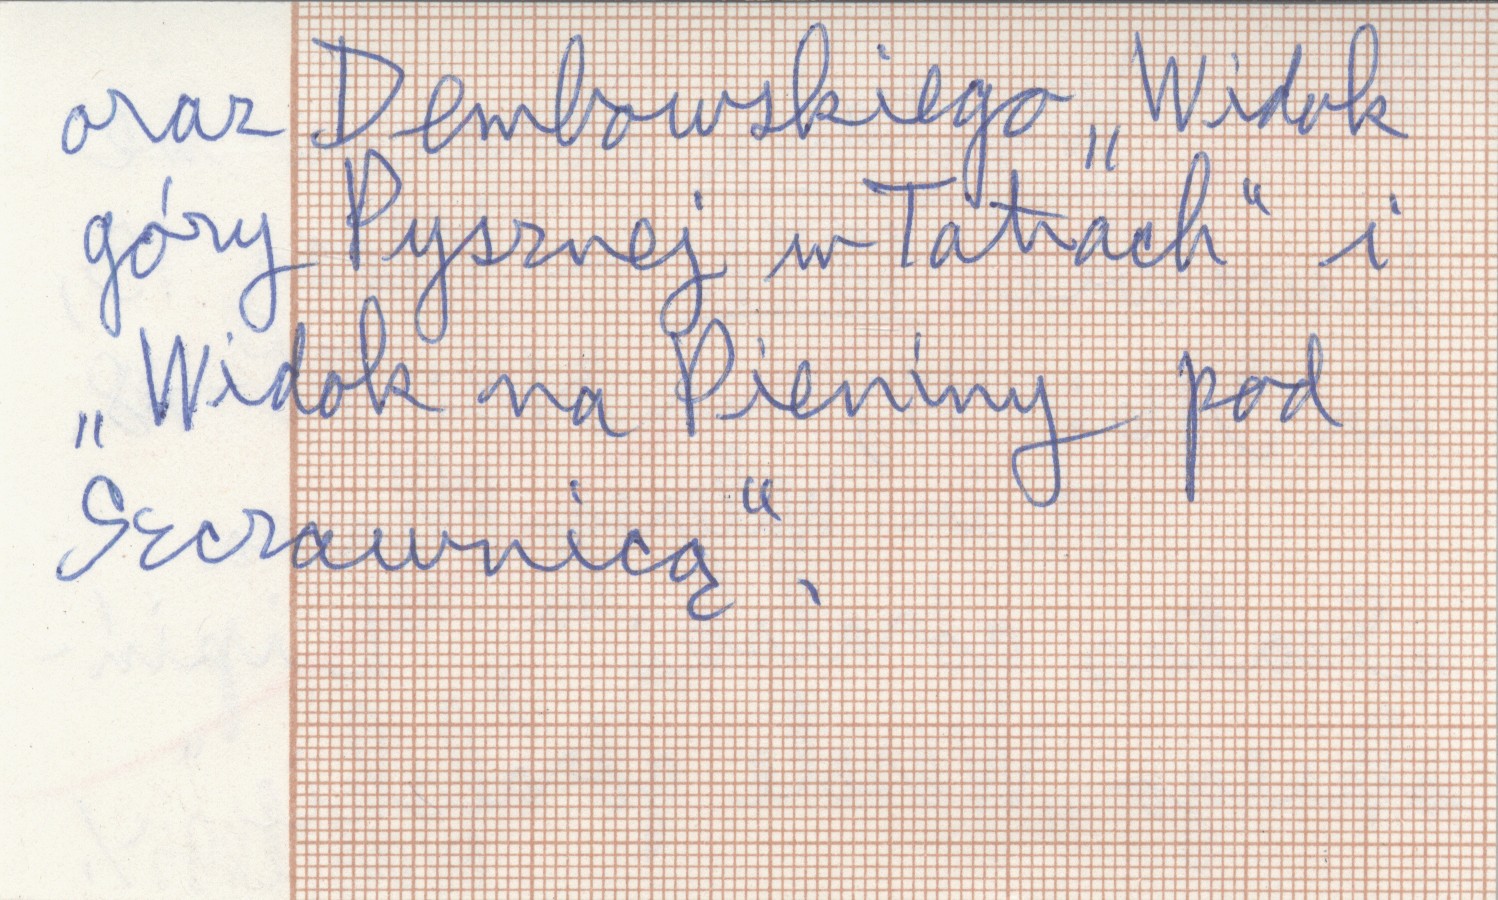 oraz Dembowskiego „Widok
góry Pysznej w Tatrach” i
„Widok na Pieniny pod
Szczawnicą”.